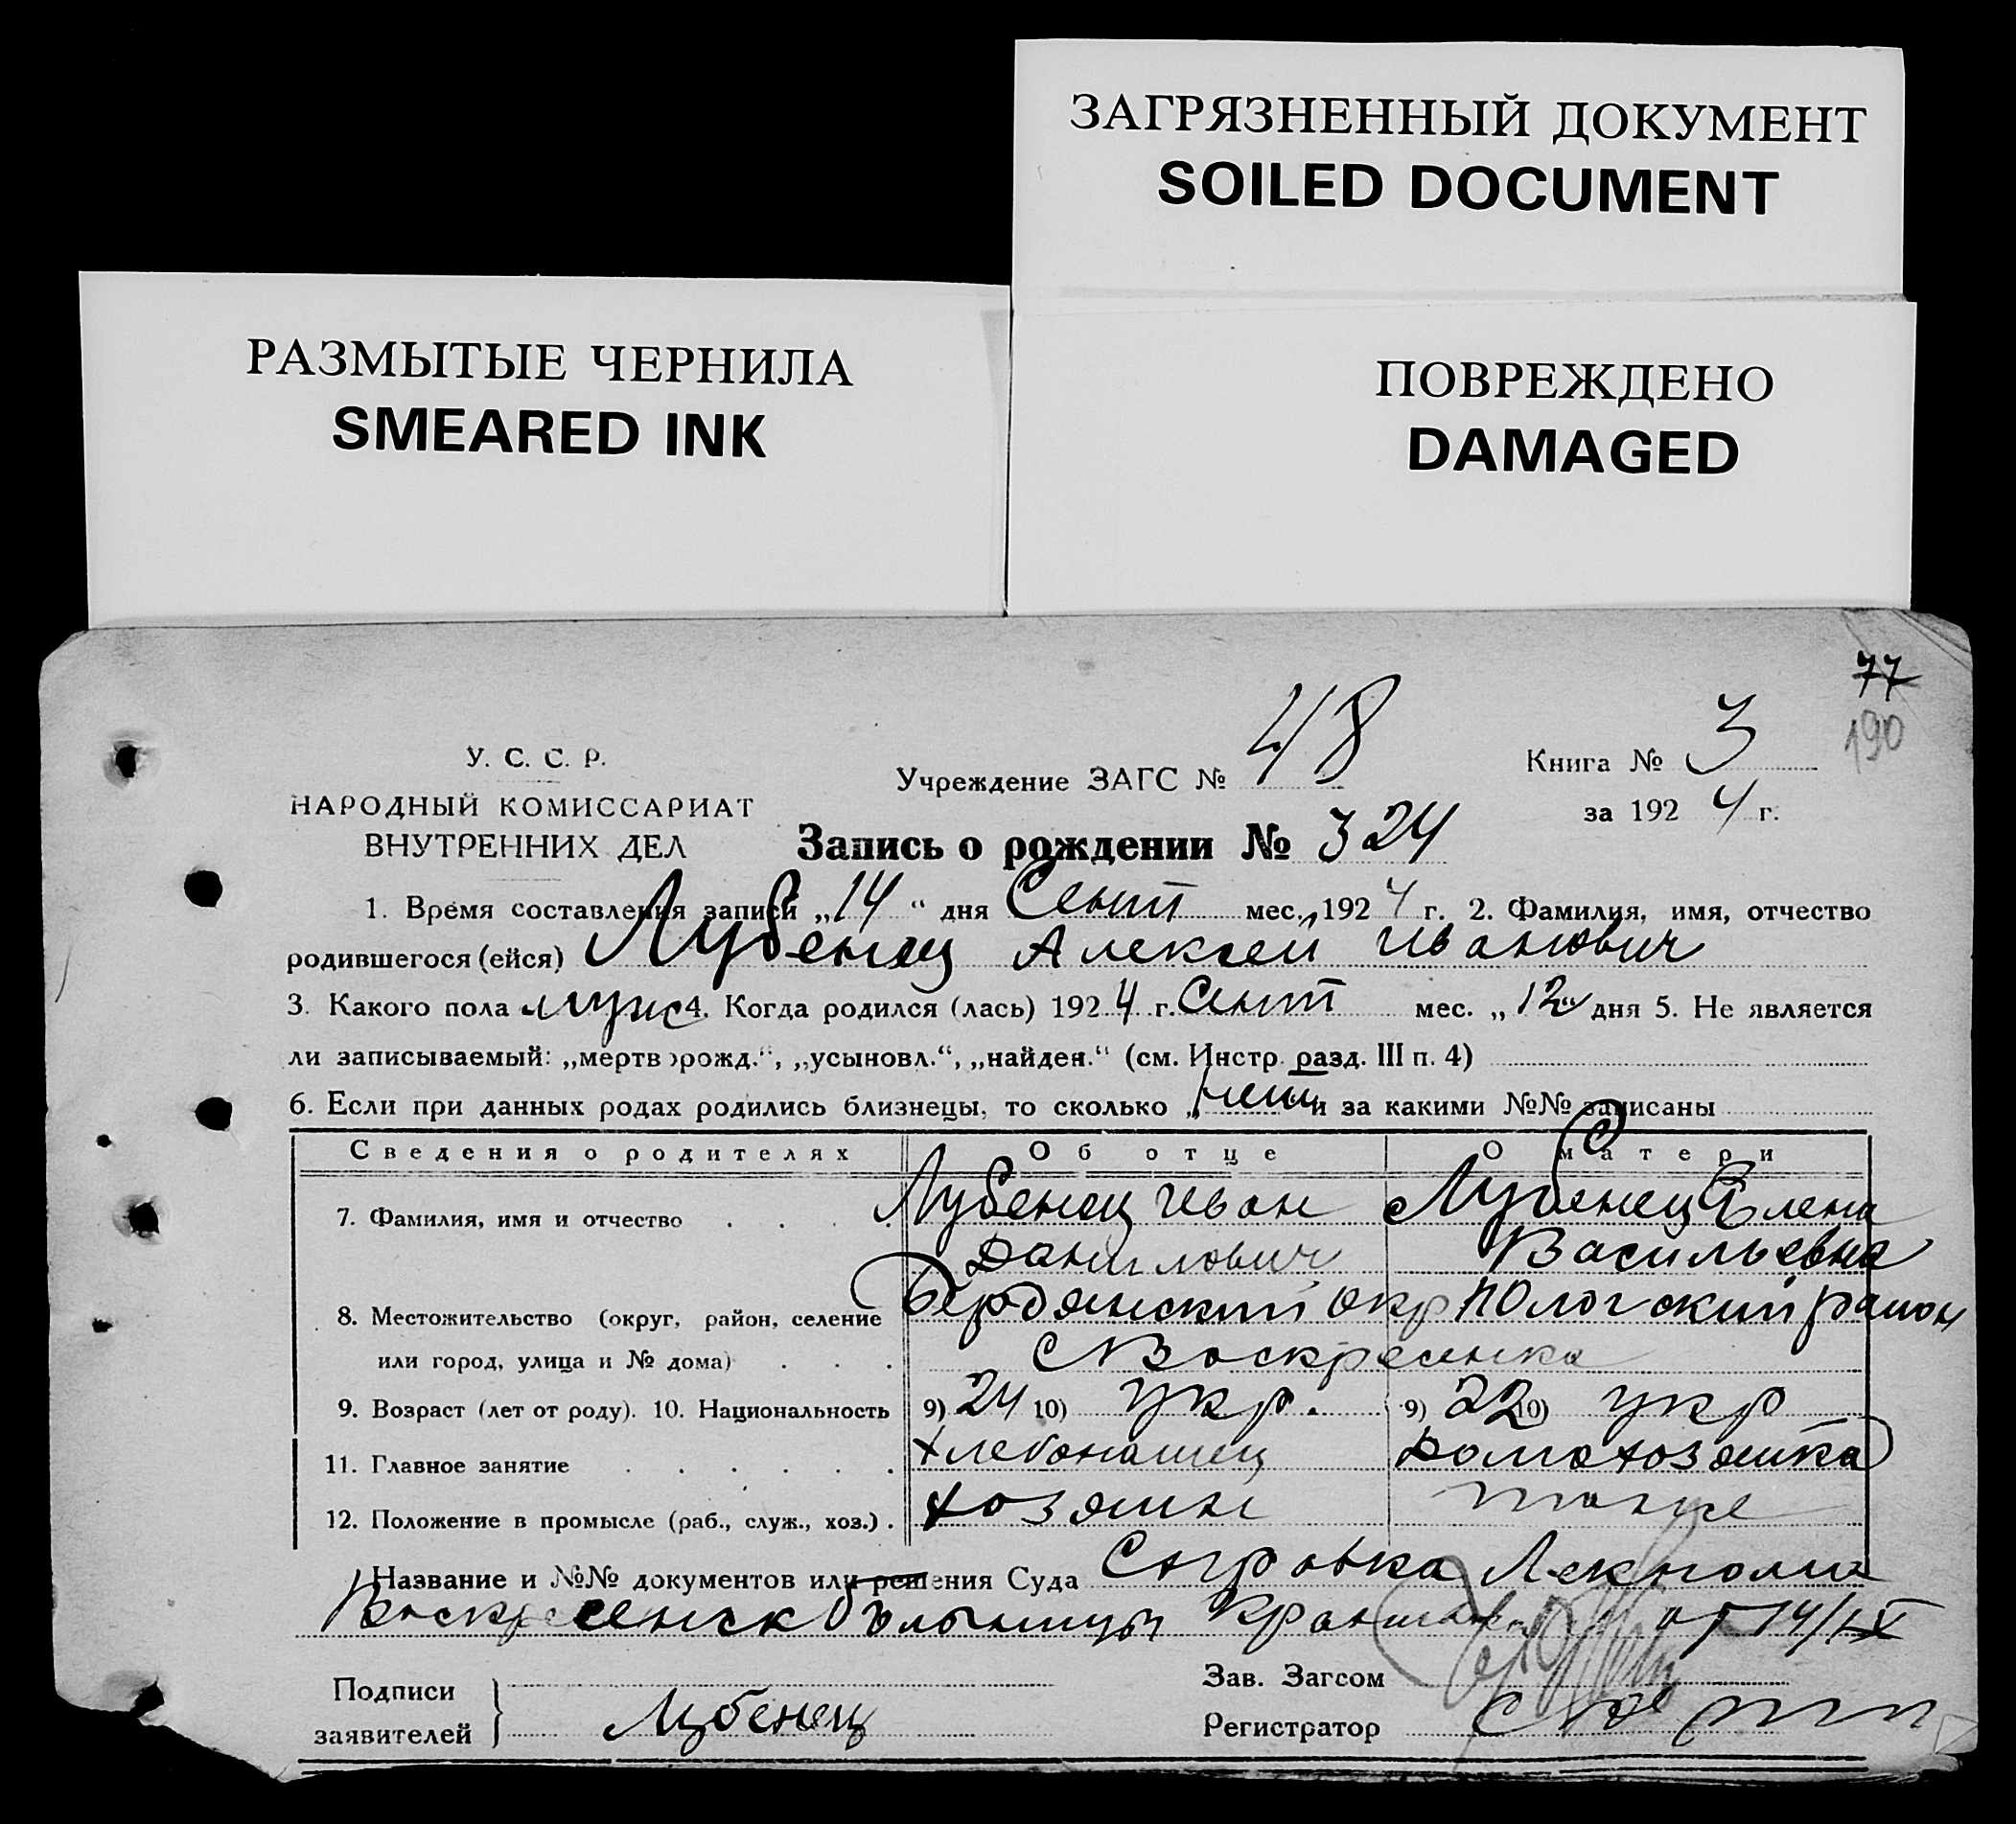 ЗАГРЯЗНЕННЫЙ ДОКУМЕНТ
SOILED DOCUMENT
РАЗМЫТЫЕ ЧЕРНИЛА
SMEARED INK
ПОВРЕЖДЕНО
DAMAGED
77
190
У. С. С. Р.
НАРОДНЫЙ КОМИССАРИАТ
ВНУТРЕННИХ ДЕЛ
Учреждение ЗАГС № 48
Книга № 3
за 1924 г.
Запись о рождении № 324
1. Время составления записи „14“ дня Сент мес. 1924 г. 2. Фамилия, имя, отчество
родившегося (ейся) Лубенец Алексей Иванович
3. Какого пола муж 4. Когда родился (лась) 1924 г. Сент мес. „12“ дня 5. Не является
ли записываемый: „мертворожд.“, „усыновл.“, „найден.“ (см. Инстр. разд. III п. 4)
6. Если при данных родах родились близнецы, то сколько „нет“ и за какими №№ записаны
Сведения о родителях Об отце О матери
7. Фамилия, имя и отчество Лубенец Иван Лубенец Елена
Данилович Васильевна
8. Местожительство (округ, район, селение Бердянский окр Пологский район
или город, улица и № дома) С Воскресенка
9. Возраст (лет от роду). 10. Национальность 9) 24 10) укр. 9) 22 10) укр
11. Главное занятие хлебопашец домохозяйка
12. Положение в промысле (раб., служ., хоз.) хозяин тоже
Название и №№ документов или решения Суда Справка Лекпома
Воскресенск больницы от 14/IX
Подписи
заявителей Лубенец
Зав. Загсом
Регистратор